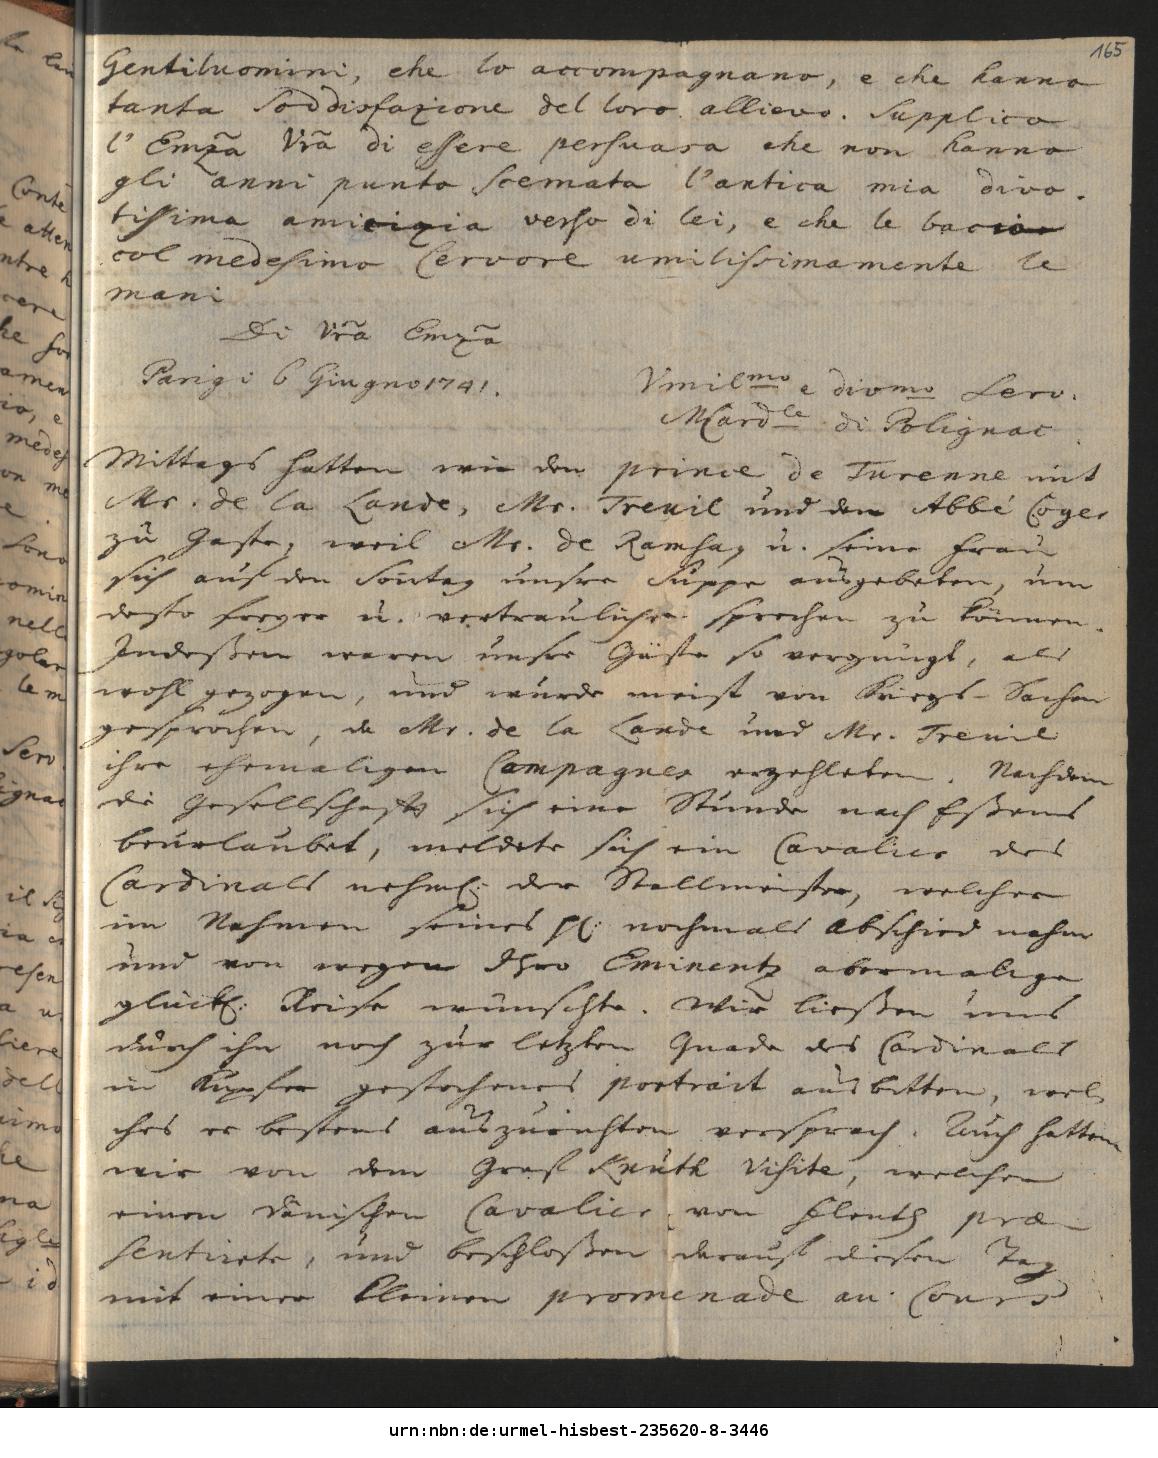 165
Gentiluomini, che lo accompagnano, e che hanno
tanta soddisfazione del loro allievo. Supplico
l' Emza̅ Vra̅ di essere persuasa che non hanno
gli anni punto scemata l'antica mia divo-
tissima amicizia verso di lei, e che le bacio
col medesimo fervore umilissimamente le
mani
Di Vra̅ Emza̅
Parigi 6 Giugno 1741.
Vmilmo e divmo Serv.
M Cardle di Polignac
Mittags hatten wir den prince de Turenne mit
Mr. de la Lande, Mr. Treuil und den Abbé Coger
zu Gaste, weil Mr. de Ramsay u. seine Frau
sich auf den Sontag unsre Suppe ausgebeten, um
desto freyer u. vertraulicher sprechen zu können.
Indeßen waren unsre Gäste so vergnügt, als
wohl gezogen, und wurde meist von Kriegs-Sachen
gesprochen, da Mr. de la Lande und Mr. Treuil
ihre ehemaligen Campagnes erzehleten. Nachdem
die Gesellschafft sich eine Stunde nach Eßens
beurlaubet, meldete sich ein Cavalier des
Cardinals nehml: der Stallmeister, welcher
im Nahmen seines H: nochmals Abschied nahm
und von wegen Ihro Eminentz abermalige
glückl: Reise wünschte. Wir ließen uns
durch ihn noch zur letzten Gnade des Cardinals
in Kupfer gestochenes portrait ausbitten, wel-
ches er bestens auszurichten versprach. Auch hatten
wir von dem Graf Knuth Visite, welcher
einen dänischen Cavalier von præ-
sentirte, und beschloßen darauf diesen Tag
mit einer kleinen promenade au Cours
urn:nbn:de:urmel-hisbest-235620-8-3446